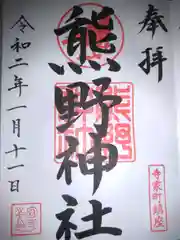 奉拝
熊野神社
令和二年一月十一日
寺家町鎮座